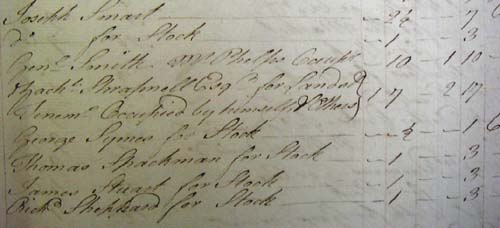 Joseph Smart — 2½ — 7 6
Do for Stock — 1 — 3
Genl. Smith Mr Phelps Occupt — 10 — 1 10
Zacht. Shrapnell Esqr. for Lands &
Tenemts. Occupied by himself & Others } 17 — 2 17
George Symes for Stock — ½ — 1 6
Thomas Strachman for Stock — 1 — 3
James Stugat for Stock — 1 — 3
Richd. Sheppard for Stock — 1 — 3